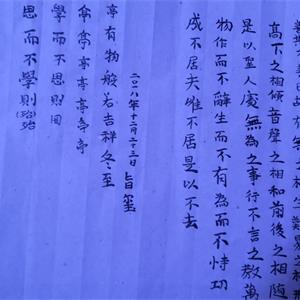 故有無之相生難易之相
高下之相傾音聲之相和前後之相隨
是以聖人處無為之事行不言之教萬
物作而不辭生而不有為而不恃功
成不居夫唯不居是以不去
二〇一八年十二月二十三日
亭有物般若吉祥冬至
亭亭亭亭亭亭
學而不思則罔
思而不學則